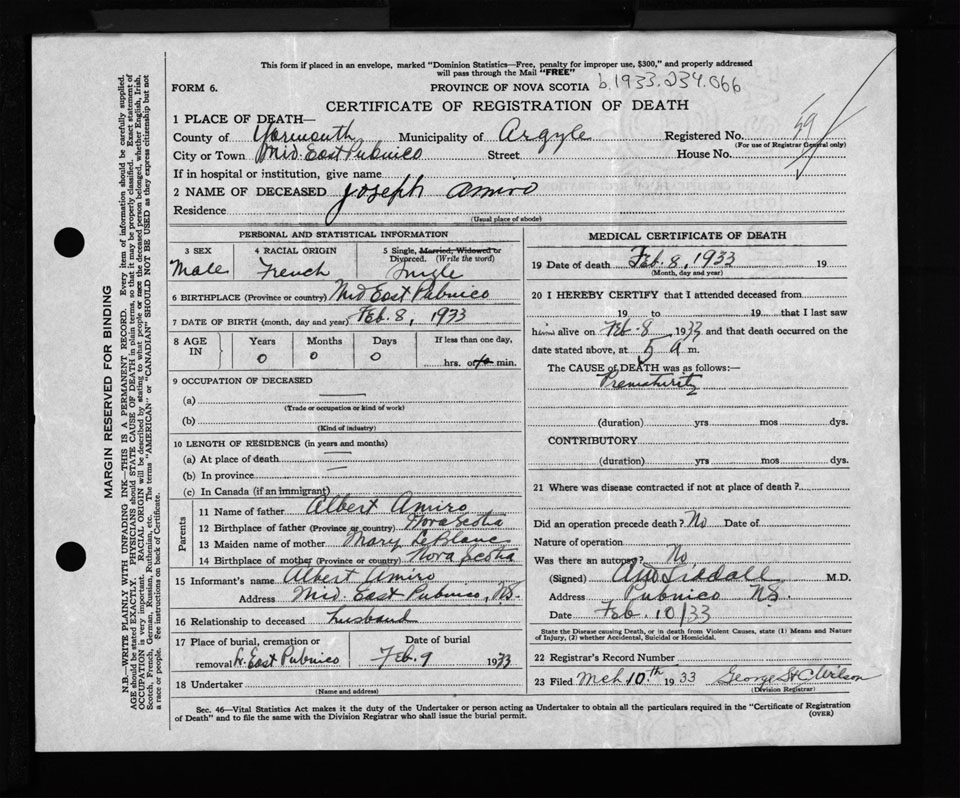 This form if placed in an envelope, marked "Dominion Statistics—Free, penalty for improper use, $300," and properly addressed
will pass through the Mail "FREE"
FORM 6. PROVINCE OF NOVA SCOTIA b.1933.234.066
CERTIFICATE OF REGISTRATION OF DEATH
1 PLACE OF DEATH—
County of Yarmouth Municipality of Argyle Registered No. 59
(For use of Registrar General only)
City or Town Mid. East Pubnico Street House No.
If in hospital or institution, give name
2 NAME OF DECEASED Joseph Amiro
Residence
(Usual place of abode)
PERSONAL AND STATISTICAL INFORMATION
3 SEX 4 RACIAL ORIGIN 5 Single, Married, Widowed or
Divorced. (Write the word)
Male French Single
6 BIRTHPLACE (Province or country) Mid East Pubnico
7 DATE OF BIRTH (month, day and year) Feb. 8, 1933
8 AGE IN Years Months Days If less than one day,
0 0 0 hrs. or 10 min.
9 OCCUPATION OF DECEASED
(a) —
(Trade or occupation or kind of work)
(b)
(Kind of industry)
10 LENGTH OF RESIDENCE (in years and months)
(a) At place of death
(b) In province
(c) In Canada (if an immigrant)
Parents
11 Name of father Albert Amiro
12 Birthplace of father (Province or country) Nova Scotia
13 Maiden name of mother Mary LeBlanc
14 Birthplace of mother (Province or country) Nova Scotia
15 Informant's name Albert Amiro
Address Mid. East Pubnico, N.S.
16 Relationship to deceased husband
17 Place of burial, cremation or Date of burial
removal W. East Pubnico Feb. 9 1933
18 Undertaker
(Name and address)
MEDICAL CERTIFICATE OF DEATH
19 Date of death Feb. 8, 1933 19
(Month, day and year)
20 I HEREBY CERTIFY that I attended deceased from
19 to 19 that I last saw
him alive on Feb-8 1933 and that death occurred on the
date stated above, at 5 a m.
The CAUSE of DEATH was as follows:—
Prematurity
(duration) yrs mos dys.
CONTRIBUTORY
(duration) yrs mos dys.
21 Where was disease contracted if not at place of death?
Did an operation precede death? No Date of
Nature of operation
Was there an autopsy? No
(Signed) Liddall M.D.
Address Pubnico N.S.
Date Feb. 10/33
State the Disease causing Death, or in death from Violent Causes, state (1) Means and Nature
of Injury, (2) whether Accidental, Suicidal or Homicidal.
22 Registrar's Record Number
23 Filed Mch 10th 1933 George St C
(Division Registrar)
Sec. 46—Vital Statistics Act makes it the duty of the Undertaker or person acting as Undertaker to obtain all the particulars required in the "Certificate of Registration
of Death" and to file the same with the Division Registrar who shall issue the burial permit. (OVER)
MARGIN RESERVED FOR BINDING
N.B.—WRITE PLAINLY WITH UNFADING INK—THIS IS A PERMANENT RECORD. Every item of information should be carefully supplied.
AGE should be stated EXACTLY. PHYSICIANS should STATE CAUSE OF DEATH in plain terms, so that it may be properly classified. Exact statement of
OCCUPATION is very important. RACIAL ORIGIN will be described by stating to what people or race the deceased person belonged, whether English, Irish,
Scotch, French, German, Russian, Ruthenian, etc. The terms "AMERICAN" or "CANADIAN" SHOULD NOT BE USED as they express citizenship but not
a race or people. See instructions on back of Certificate.